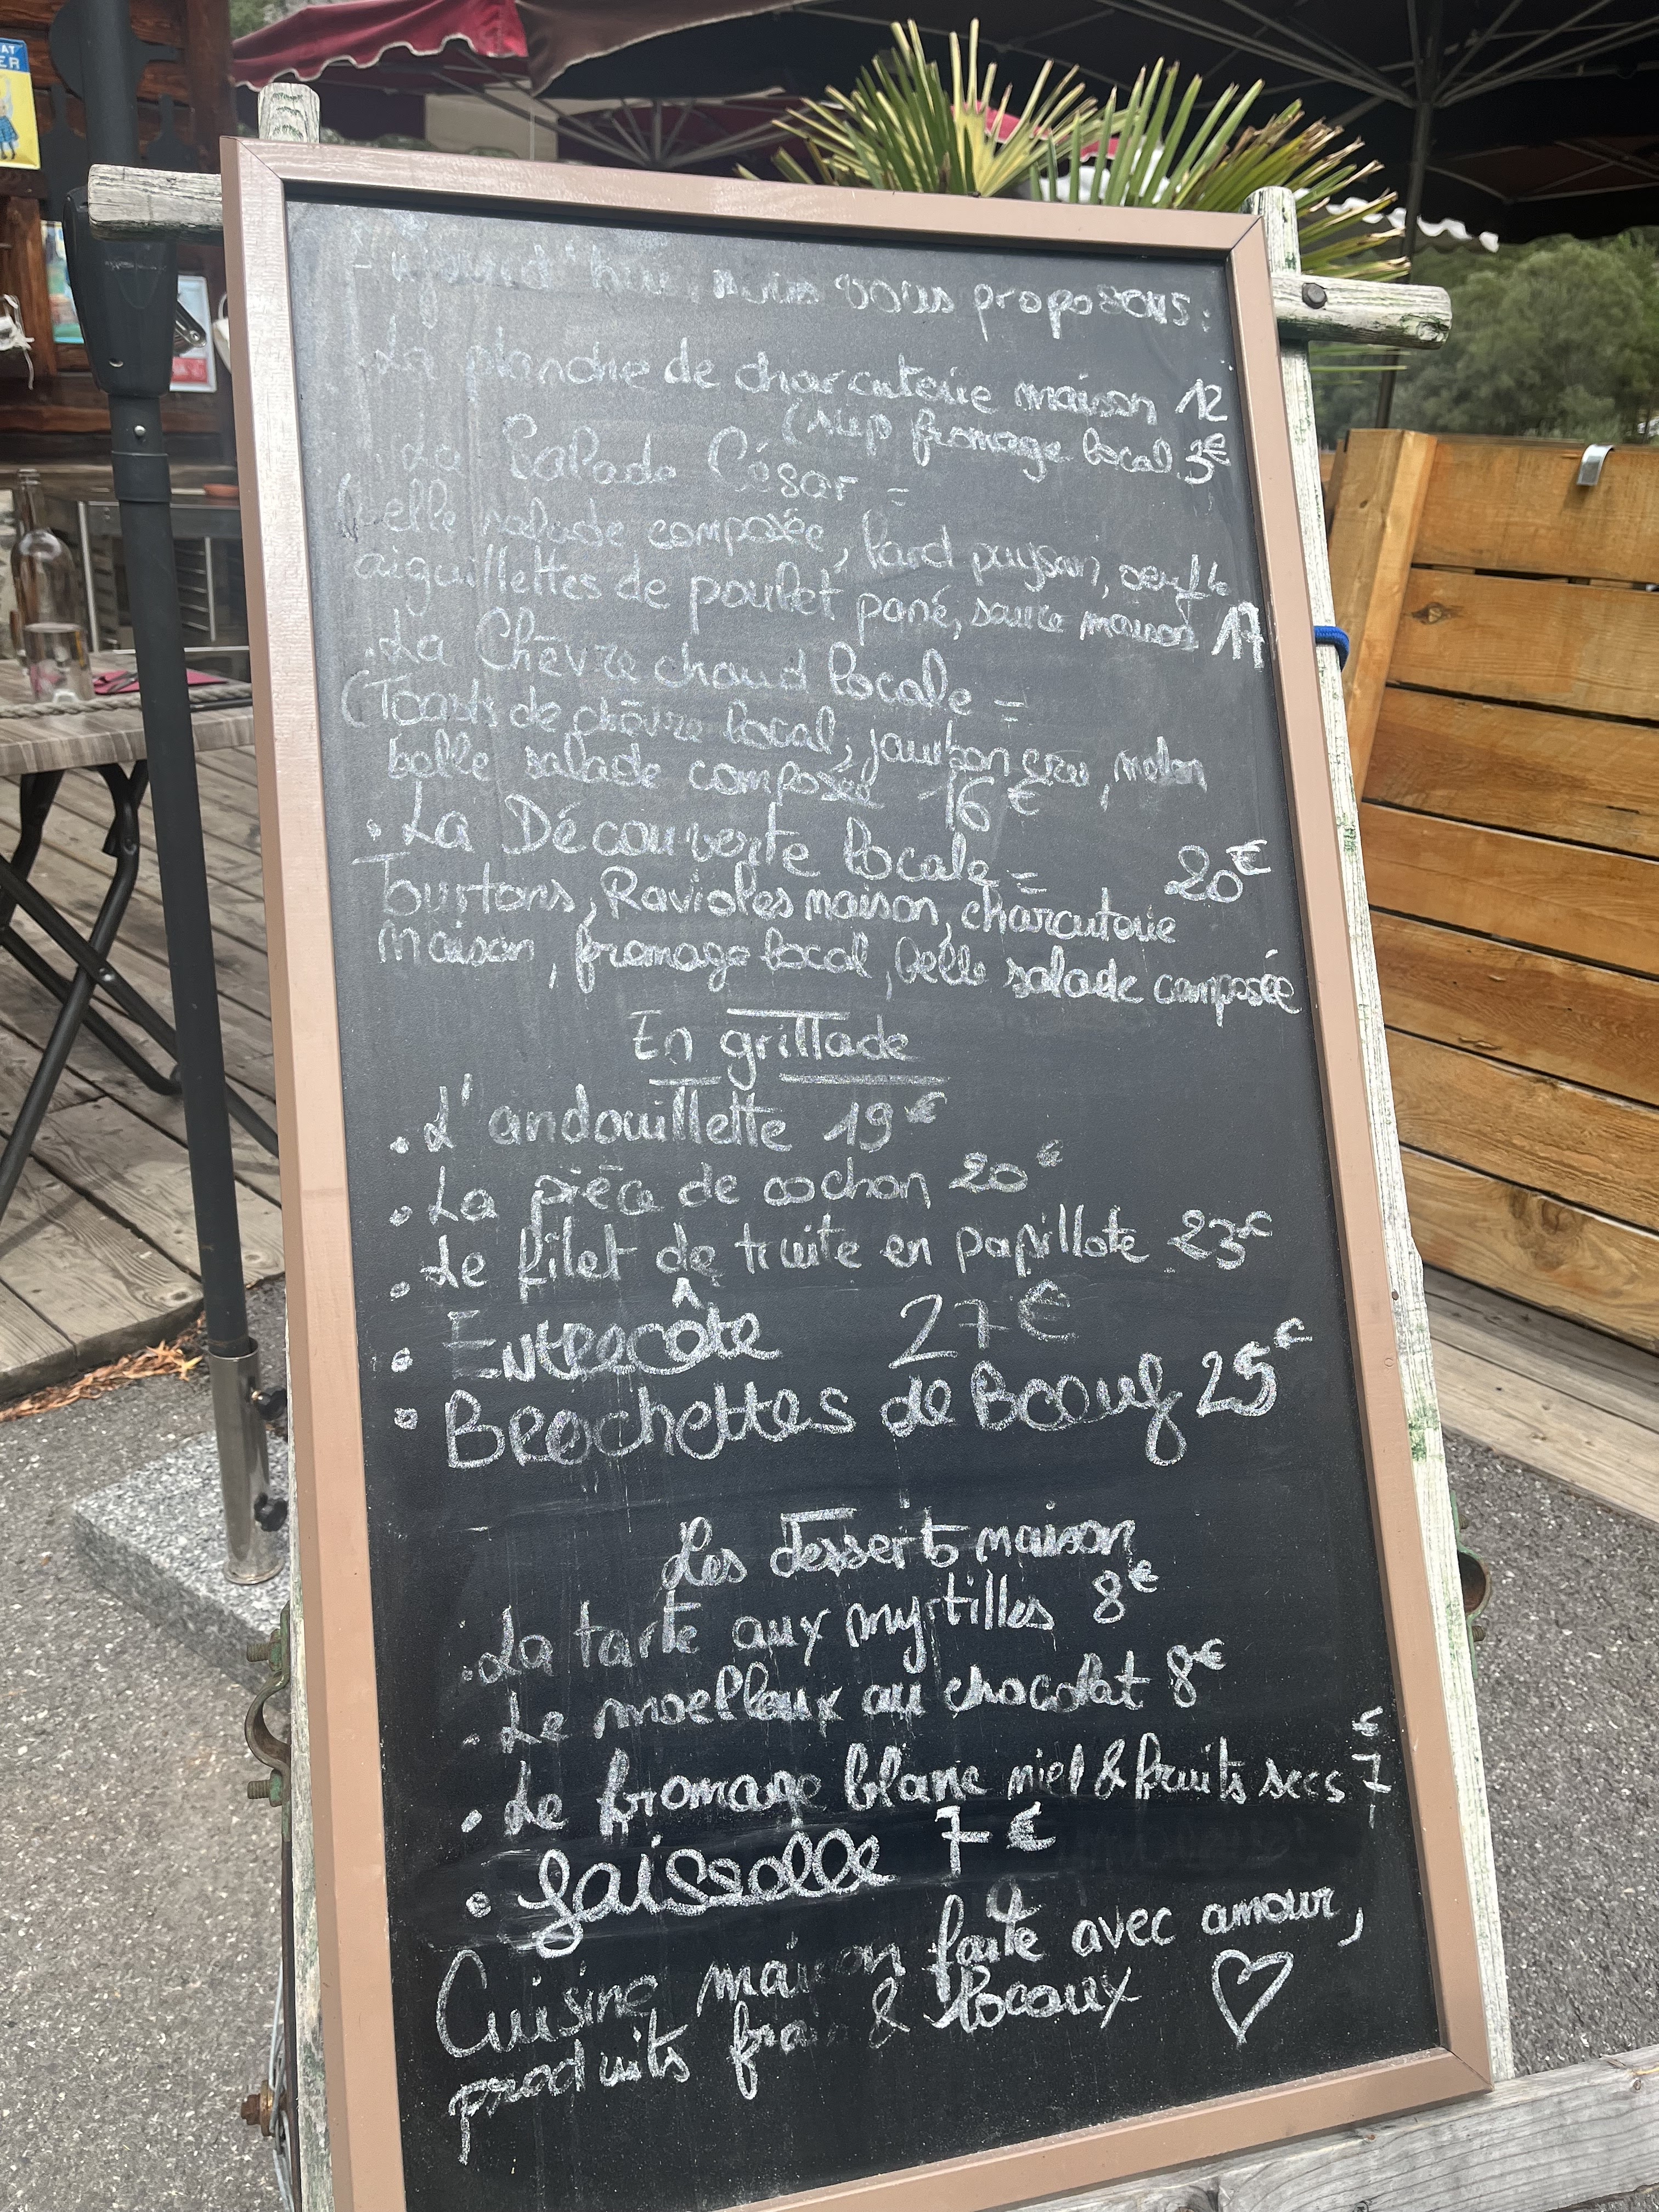 AT
ER
Aujourd'hui, nous vous proposons:
. La planche de charcuterie maison 12
(sup fromage local 3€
. La Salade César =
(belle salade composée, lard paysan, oeuf
aiguillettes de poulet pané, sauce maison 17
. La Chèvre chaud locale =
(Toasts de chèvre local, jambon cru, melon
belle salade composée 16€
. La Découverte locale = 20€
Tourtons, Ravioles maison, charcuterie
maison, fromage local, belle salade composée
En grillade
. L'andouillette 19€
. La pièce de cochon 20€
. Le filet de truite en papillote 23€
. Entrecôte 27€
. Brochettes de Boeuf 25€
Les desserts maison
. La tarte aux myrtilles 8€
. Le moelleux au chocolat 8€
. Le fromage blanc miel & fruits secs 7€
. faisselle 7€
Cuisine maison faite avec amour,
produits frais & locaux ♡